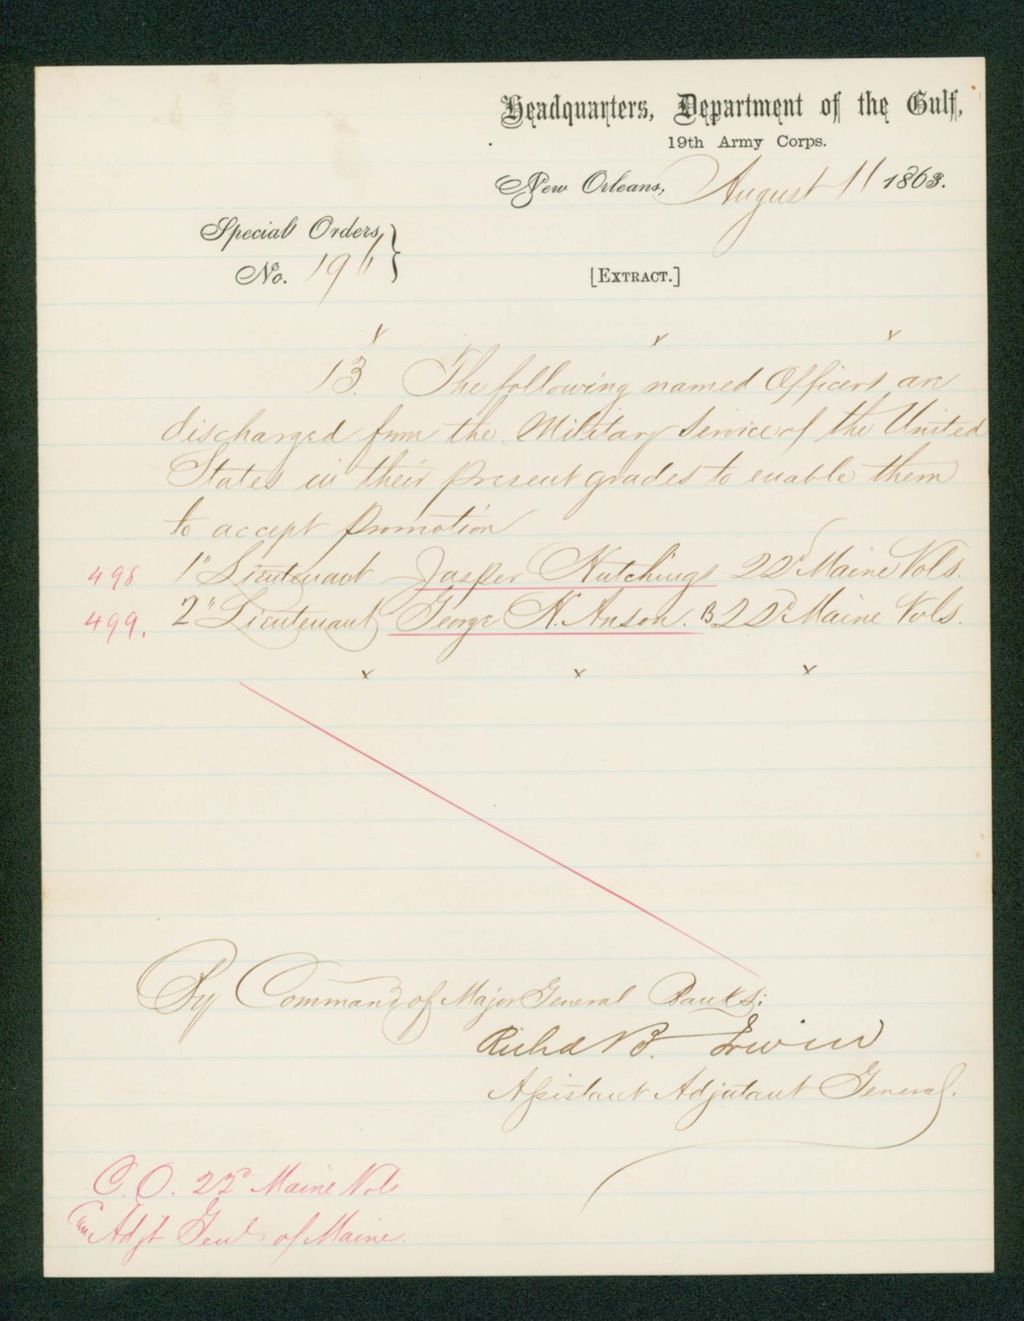 Headquarters, Department of the Gulf,
19th Army Corps.
New Orleans, August 11 1863.
Special Orders,
No. 196
[EXTRACT.]
x x x
13. The following named Officers are
discharged from the Military Service of the United
States in their present grades to enable them
to accept promotion
498 1" Lieutenant Jasper Hutchings 22d Maine Vols.
499. 2" Lieutenant George N. Anson. B 22d Maine Vols.
x x x
By Command of Major General Banks:
Richd B. Irwin
Assistant Adjutant General.
C.O. 22d Maine Vols
Adjt Genl of Maine.